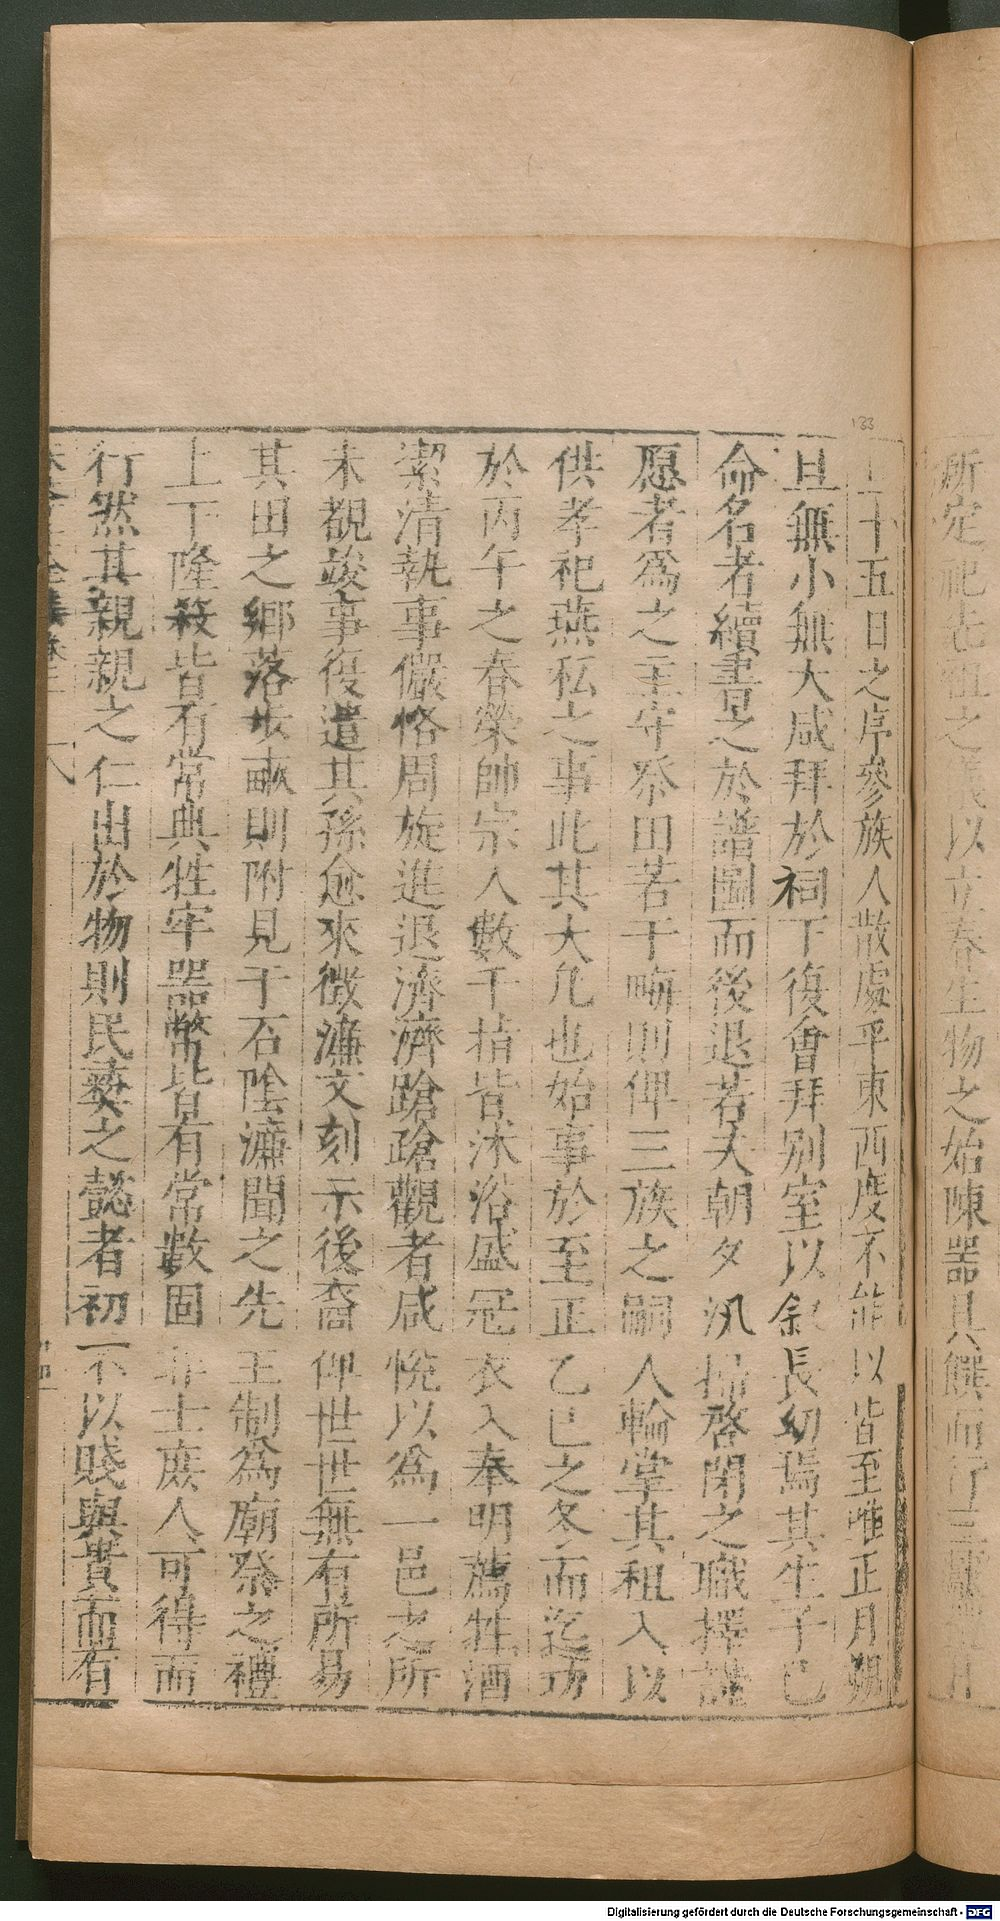 所定祀先祖之義以立春生物之始陳器具饌而行三獻
上十五日之序參族人散處乎東西度不能以皆至唯正月朔
旦無小無大咸拜於祠下復會拜別室以敘長幼焉其生子已
命名者續書之於譜圖而後退若夫朝夕汛掃啓閉之職擇謹
愿者為之主守祭田若干畝則俾三族之嗣人輪掌其租入以
供孝祀燕私之事此其大凡也始事於至正乙巳之冬而迄功
於丙午之春榮帥宗人數千指皆沐浴盛冠衣入奉明薦牲酒
潔清執事儼恪周旋進退濟濟蹌蹌觀者咸悅以為一邑之所
未覩竣事復遣其孫愈來徵濂文刻示後裔俾世世無有所易
其田之鄉落步畝則附見于石陰濂聞之先王制為廟祭之禮
上下隆殺皆有常典牲牢器幣皆有常數固非士庶人可得而
行然其親親之仁出於物則民彝之懿者初不以賤與貴而有
八
Digitalisierung gefördert durch die Deutsche Forschungsgemeinschaft - DFG